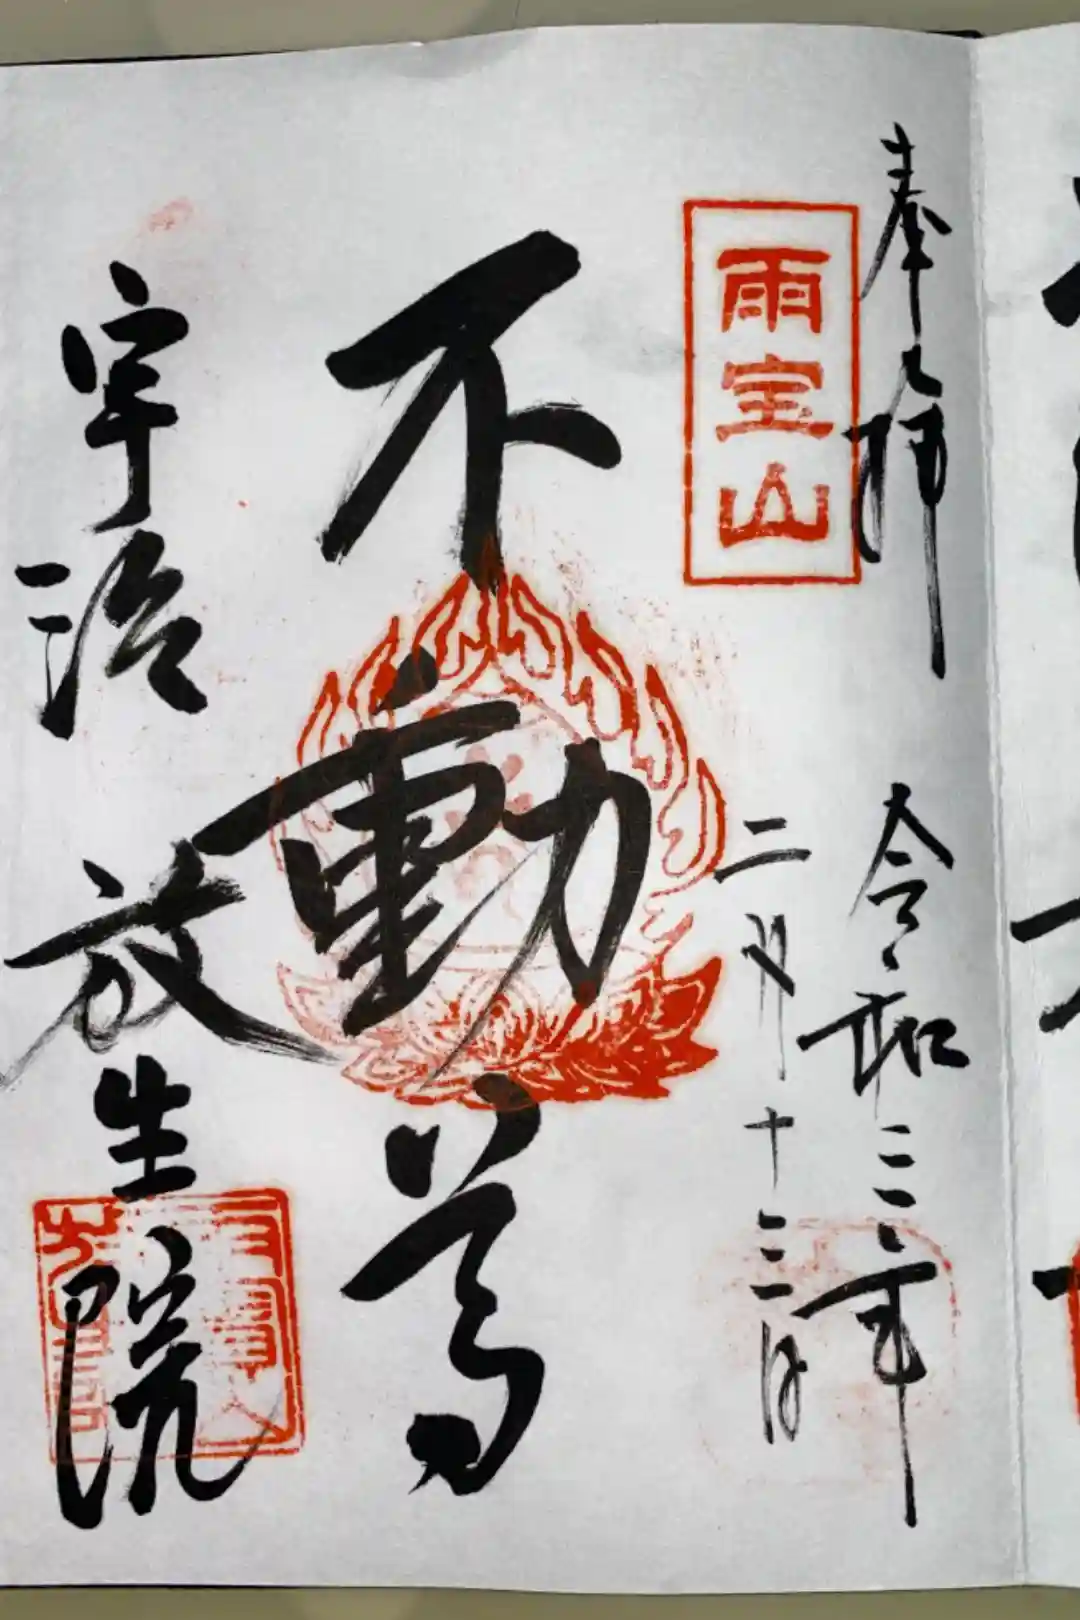 奉拝
令和三年
雨宝山
二月十三日
不動尊
宇治
放生院